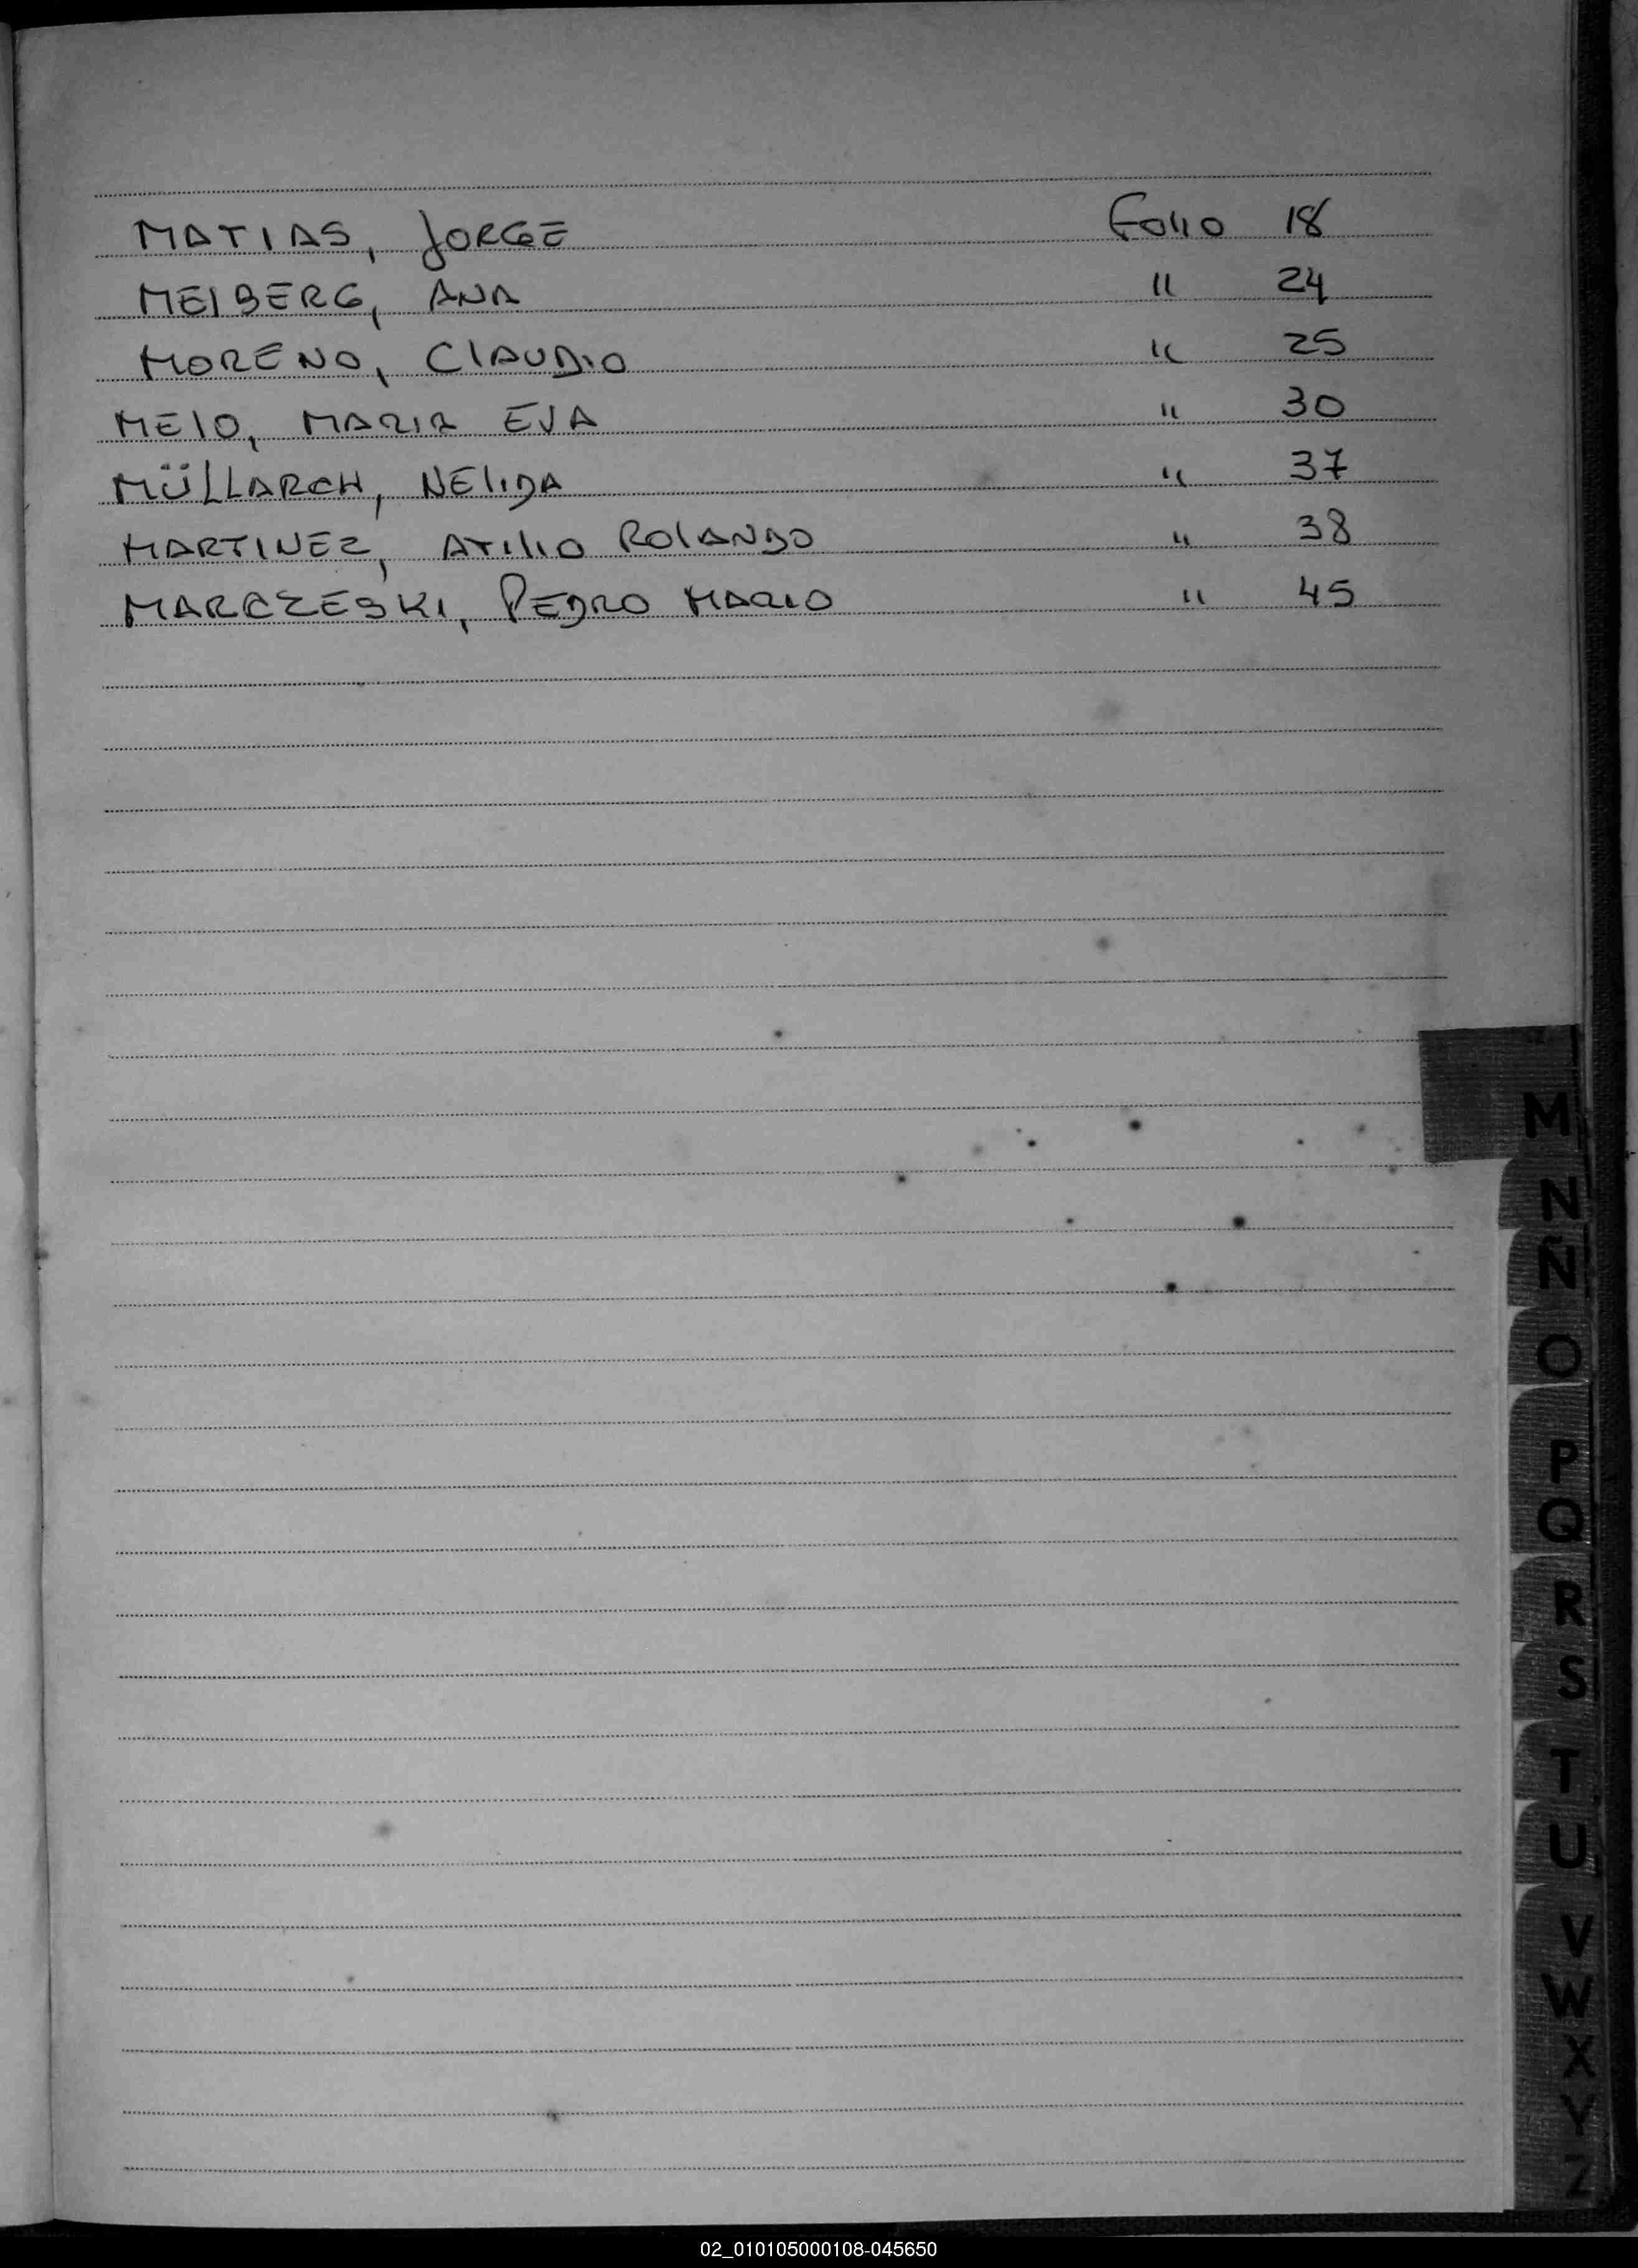 MATIAS, JORGE Folio 18
MEIBERG, ANA " 24
MORENO, ClAUDIO " 25
MElO, MARIA EVA " 30
MÜLLARCH, NElIDA " 37
MARTINEZ, ATIlIO ROlANDO " 38
MARCZESKI, PEDRO MARIO " 45
M
N
Ñ
O
P
Q
R
S
T
U
V
W
X
Y
Z
02_010105000108-045650